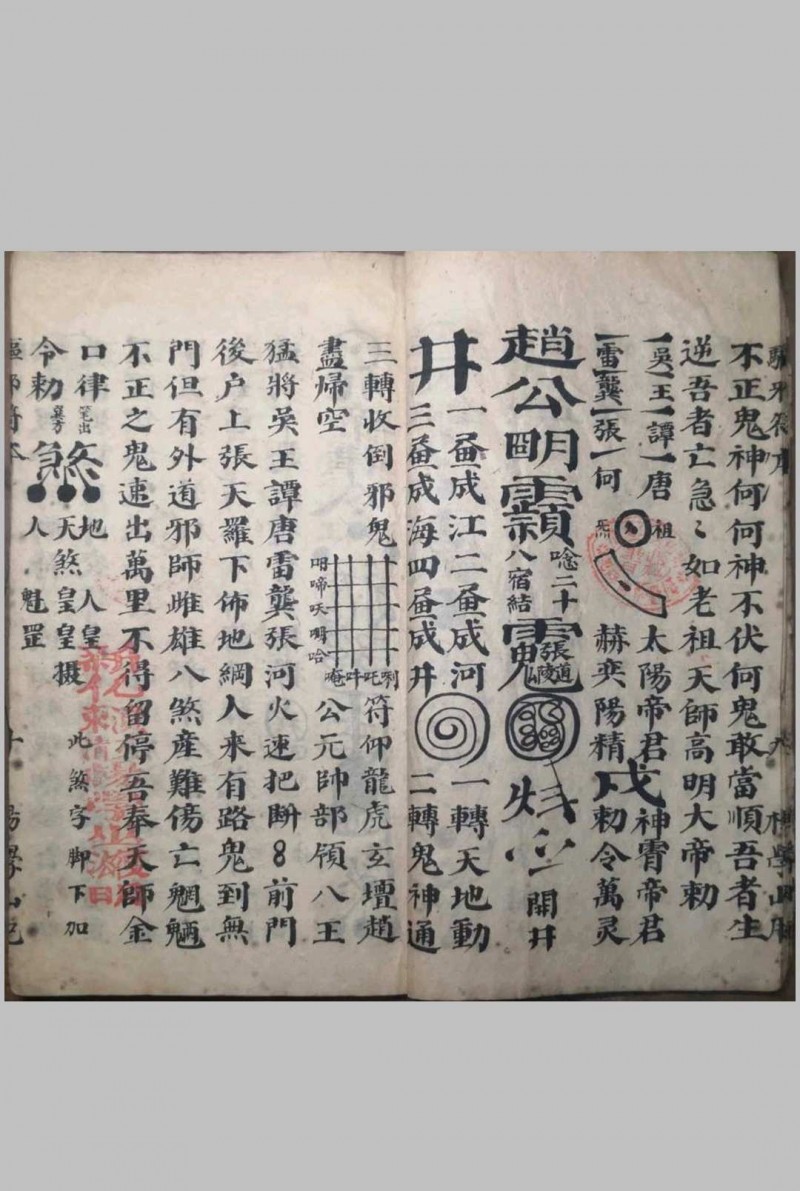 不正鬼神何何神不伏何鬼敢當順吾者生
逆吾者亡急〻如老祖天師高明大帝勅
一吳一王一譚一唐
一雷一龔一張一何
祖
炁
太陽帝君 神霄帝君
赫奕陽精 勅令萬灵
趙公明
唸二十
八宿結
張道陵
開井
井
一畚成江二畚成河
三畚成海四畚成井
一轉天地動
二轉鬼神通
三轉收倒邪鬼
盡帰空
唵吽吒唎
符仰龍虎玄壇趙
公元帥部領八王
猛將吳王譚唐雷龔張河火速把斷8前門
後户上張天羅下佈地網人来有路鬼到無
門但有外道邪師雌雄八煞産難傍亡魍魎
不正之鬼速出萬里不得留停吾奉天師金
口律
令勅
煞
地 人皇
天煞皇皇摄
人 魁罡
此煞字脚下加